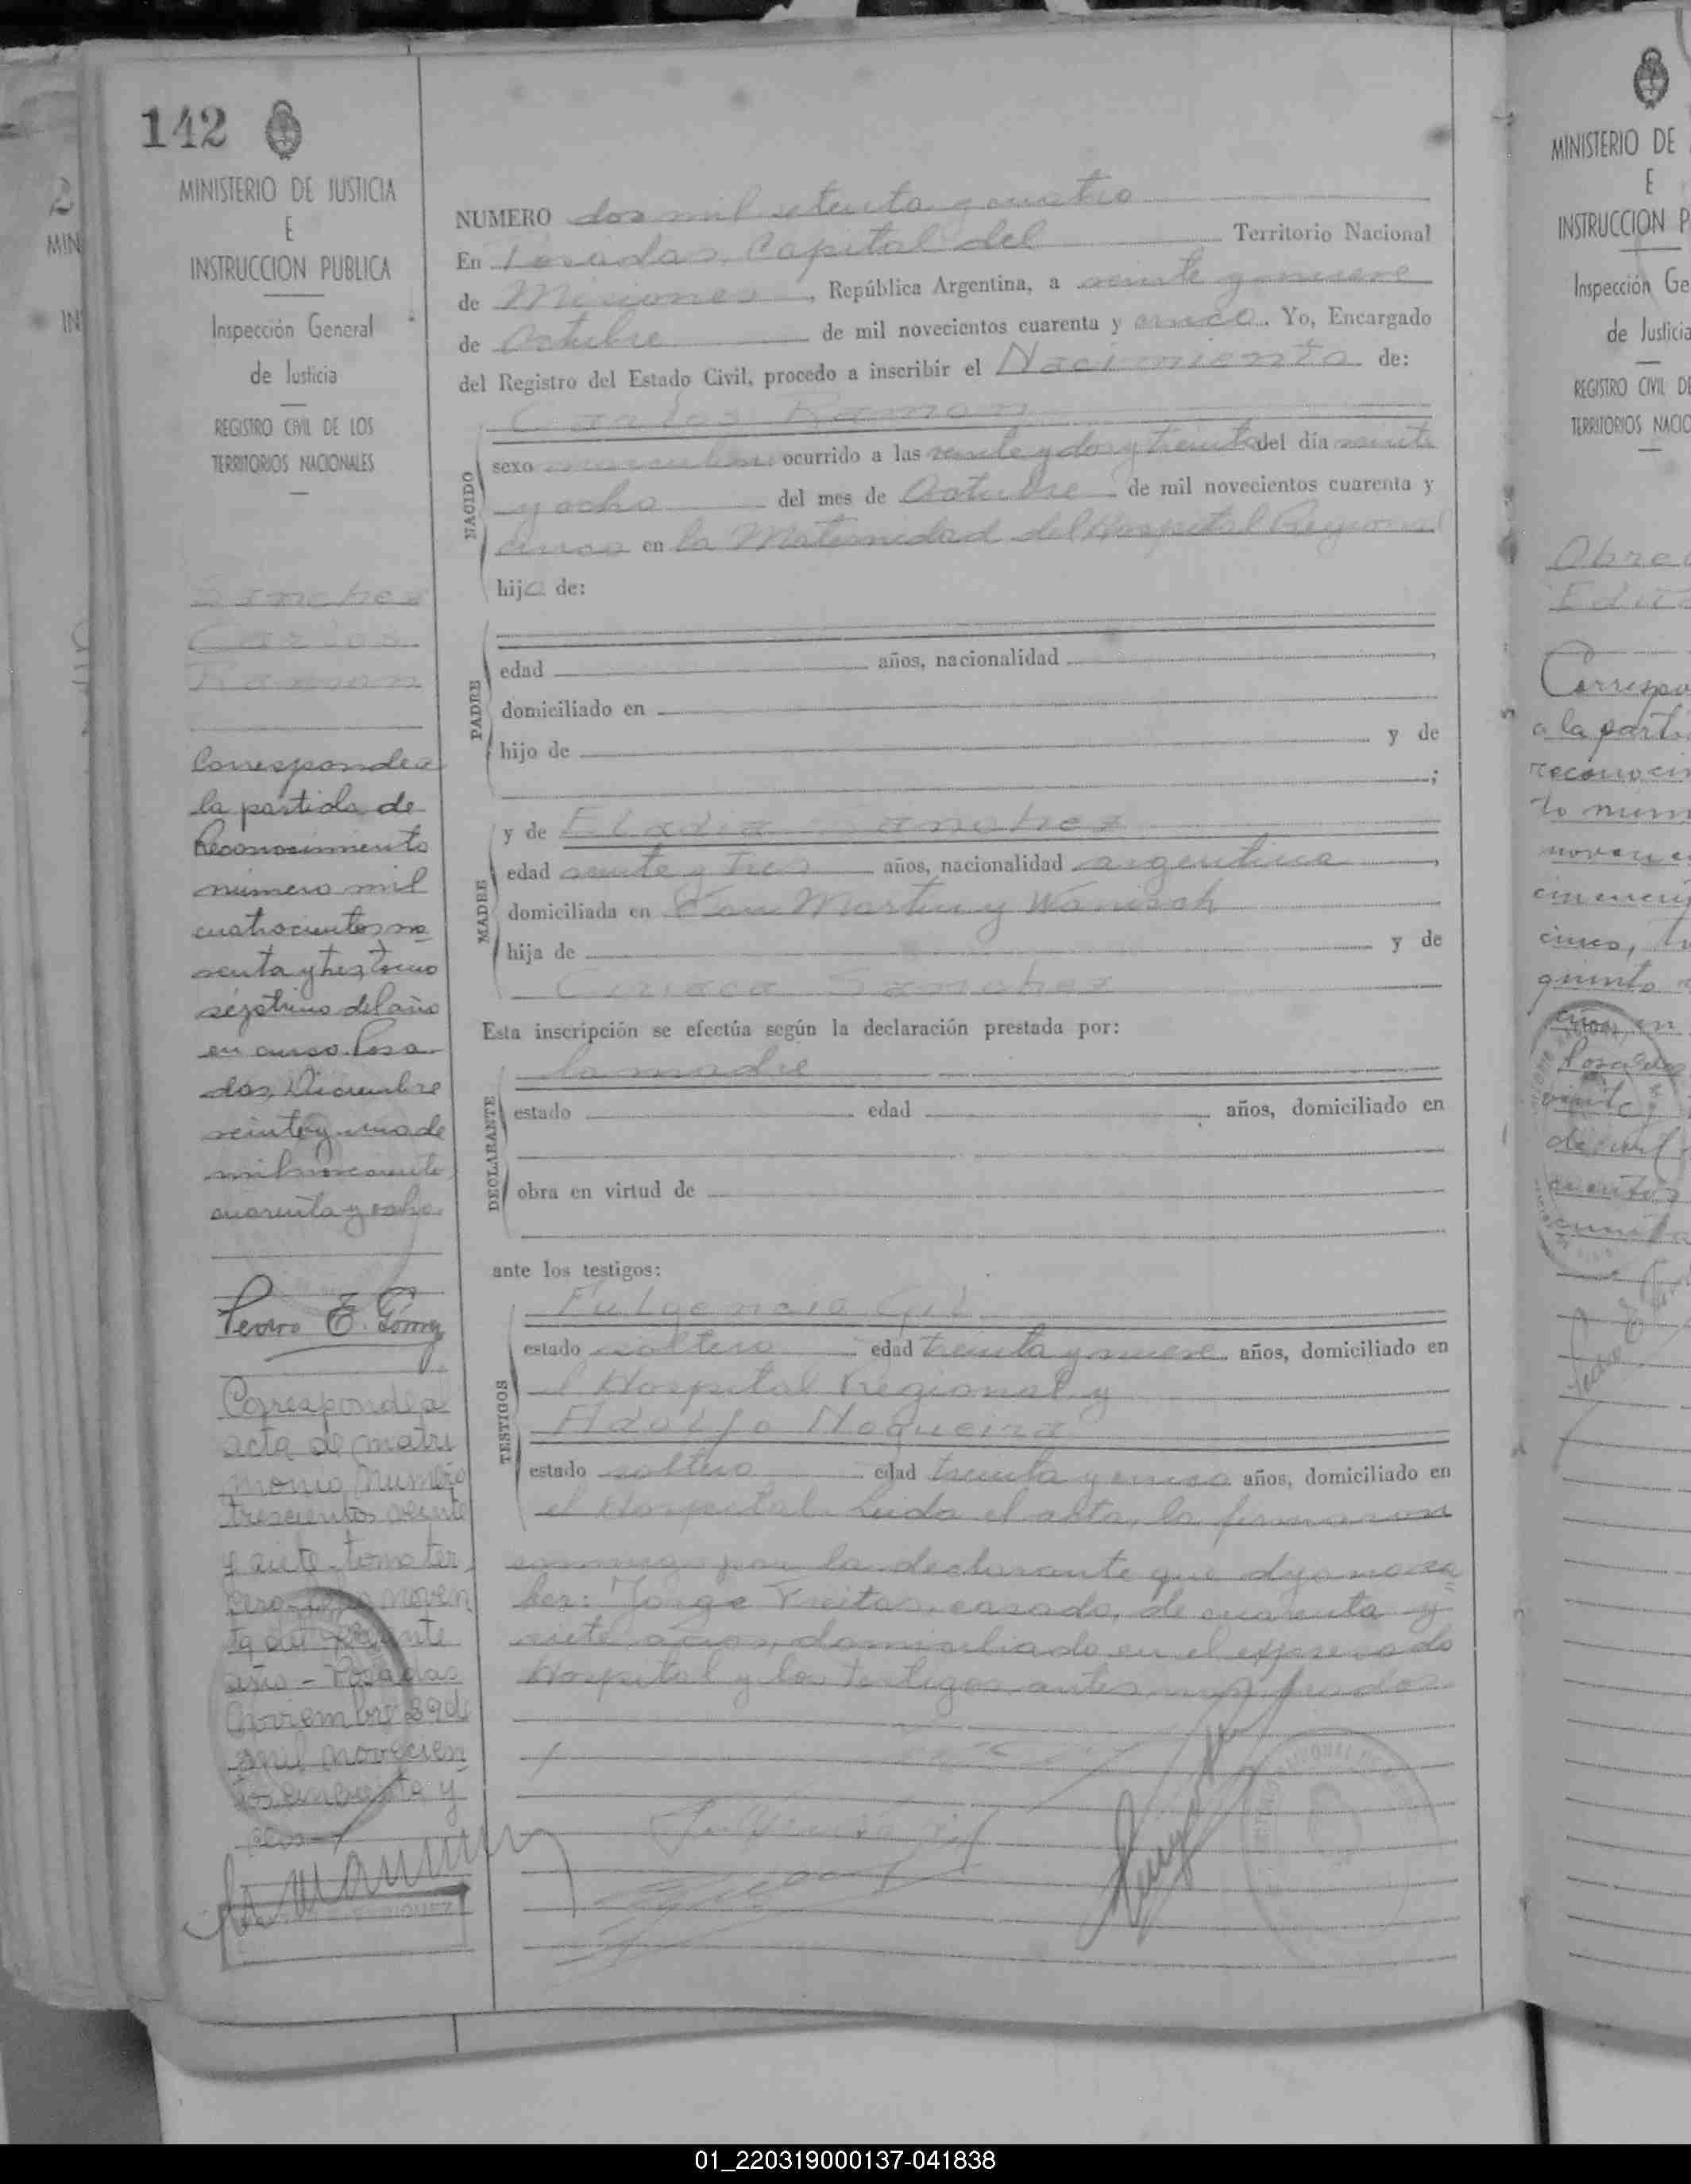 142
MINISTERIO DE JUSTICIA
E
INSTRUCCION PUBLICA
Inspección General
de Justicia
REGISTRO CIVIL DE LOS
TERRITORIOS NACIONALES
Sanchez
Carlos
Ramon
Corresponde a
la partida de
Reconocimiento
número mil
cuatrocientos no
venta y tres, tomo
séptimo del año
en curso. Posa
das, Diciembre
veinte y uno de
mil novecientos
cuarenta y ocho
Pedro E. Gómez
Corresponde al
acta de matri
monio número
trescientos veinte
y siete tomo ter
cero noven
ta del
año - Posadas
Noviembre 29 de
mil novecien
tos cincuenta y
NUMERO dos mil setenta y cuatro
En Posadas, Capital del Territorio Nacional
de Misiones, República Argentina, a veinte y nueve
de Octubre de mil novecientos cuarenta y cinco. Yo, Encargado
del Registro del Estado Civil, procedo a inscribir el Nacimiento de:
Carlos Ramon
NACIDO
sexo masculino ocurrido a las veinte y dos y treinta del día veinte
y ocho del mes de Octubre de mil novecientos cuarenta y
cinco en la Maternidad del Hospital Regional
hijo de:
PADRE
edad años, nacionalidad
domiciliado en
hijo de y de
;
MADRE
y de Eladia Sanchez
edad veinte y tres años, nacionalidad argentina,
domiciliada en San Martin y
hija de y de
Ciriaca Sanchez
Esta inscripción se efectúa según la declaración prestada por:
la madre
DECLARANTE
estado edad años, domiciliado en
obra en virtud de
ante los testigos:
TESTIGOS
Fulgencio Gil
estado soltero edad treinta y nueve años, domiciliado en
el Hospital Regional y
Adolfo Nogueira
estado soltero edad treinta y cinco años, domiciliado en
el Hospital. Leida el acta, la firmaron
conmigo por la declarante que dijo no sa
ber: Jorge Freitas, casado, de cuarenta y
siete años, domiciliado en el expresado
Hospital y los testigos antes
MINISTERIO DE
E
INSTRUCCION P
Inspección Ge
de Justicia
REGISTRO CIVIL DE
TERRITORIOS NACIO
Correspo
a la parti
reconoci
to num
cinco,
quinto
Posadas
01_220319000137-041838